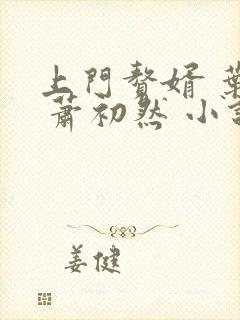 上門贅婿 葉
蕭初然 小說
姜健